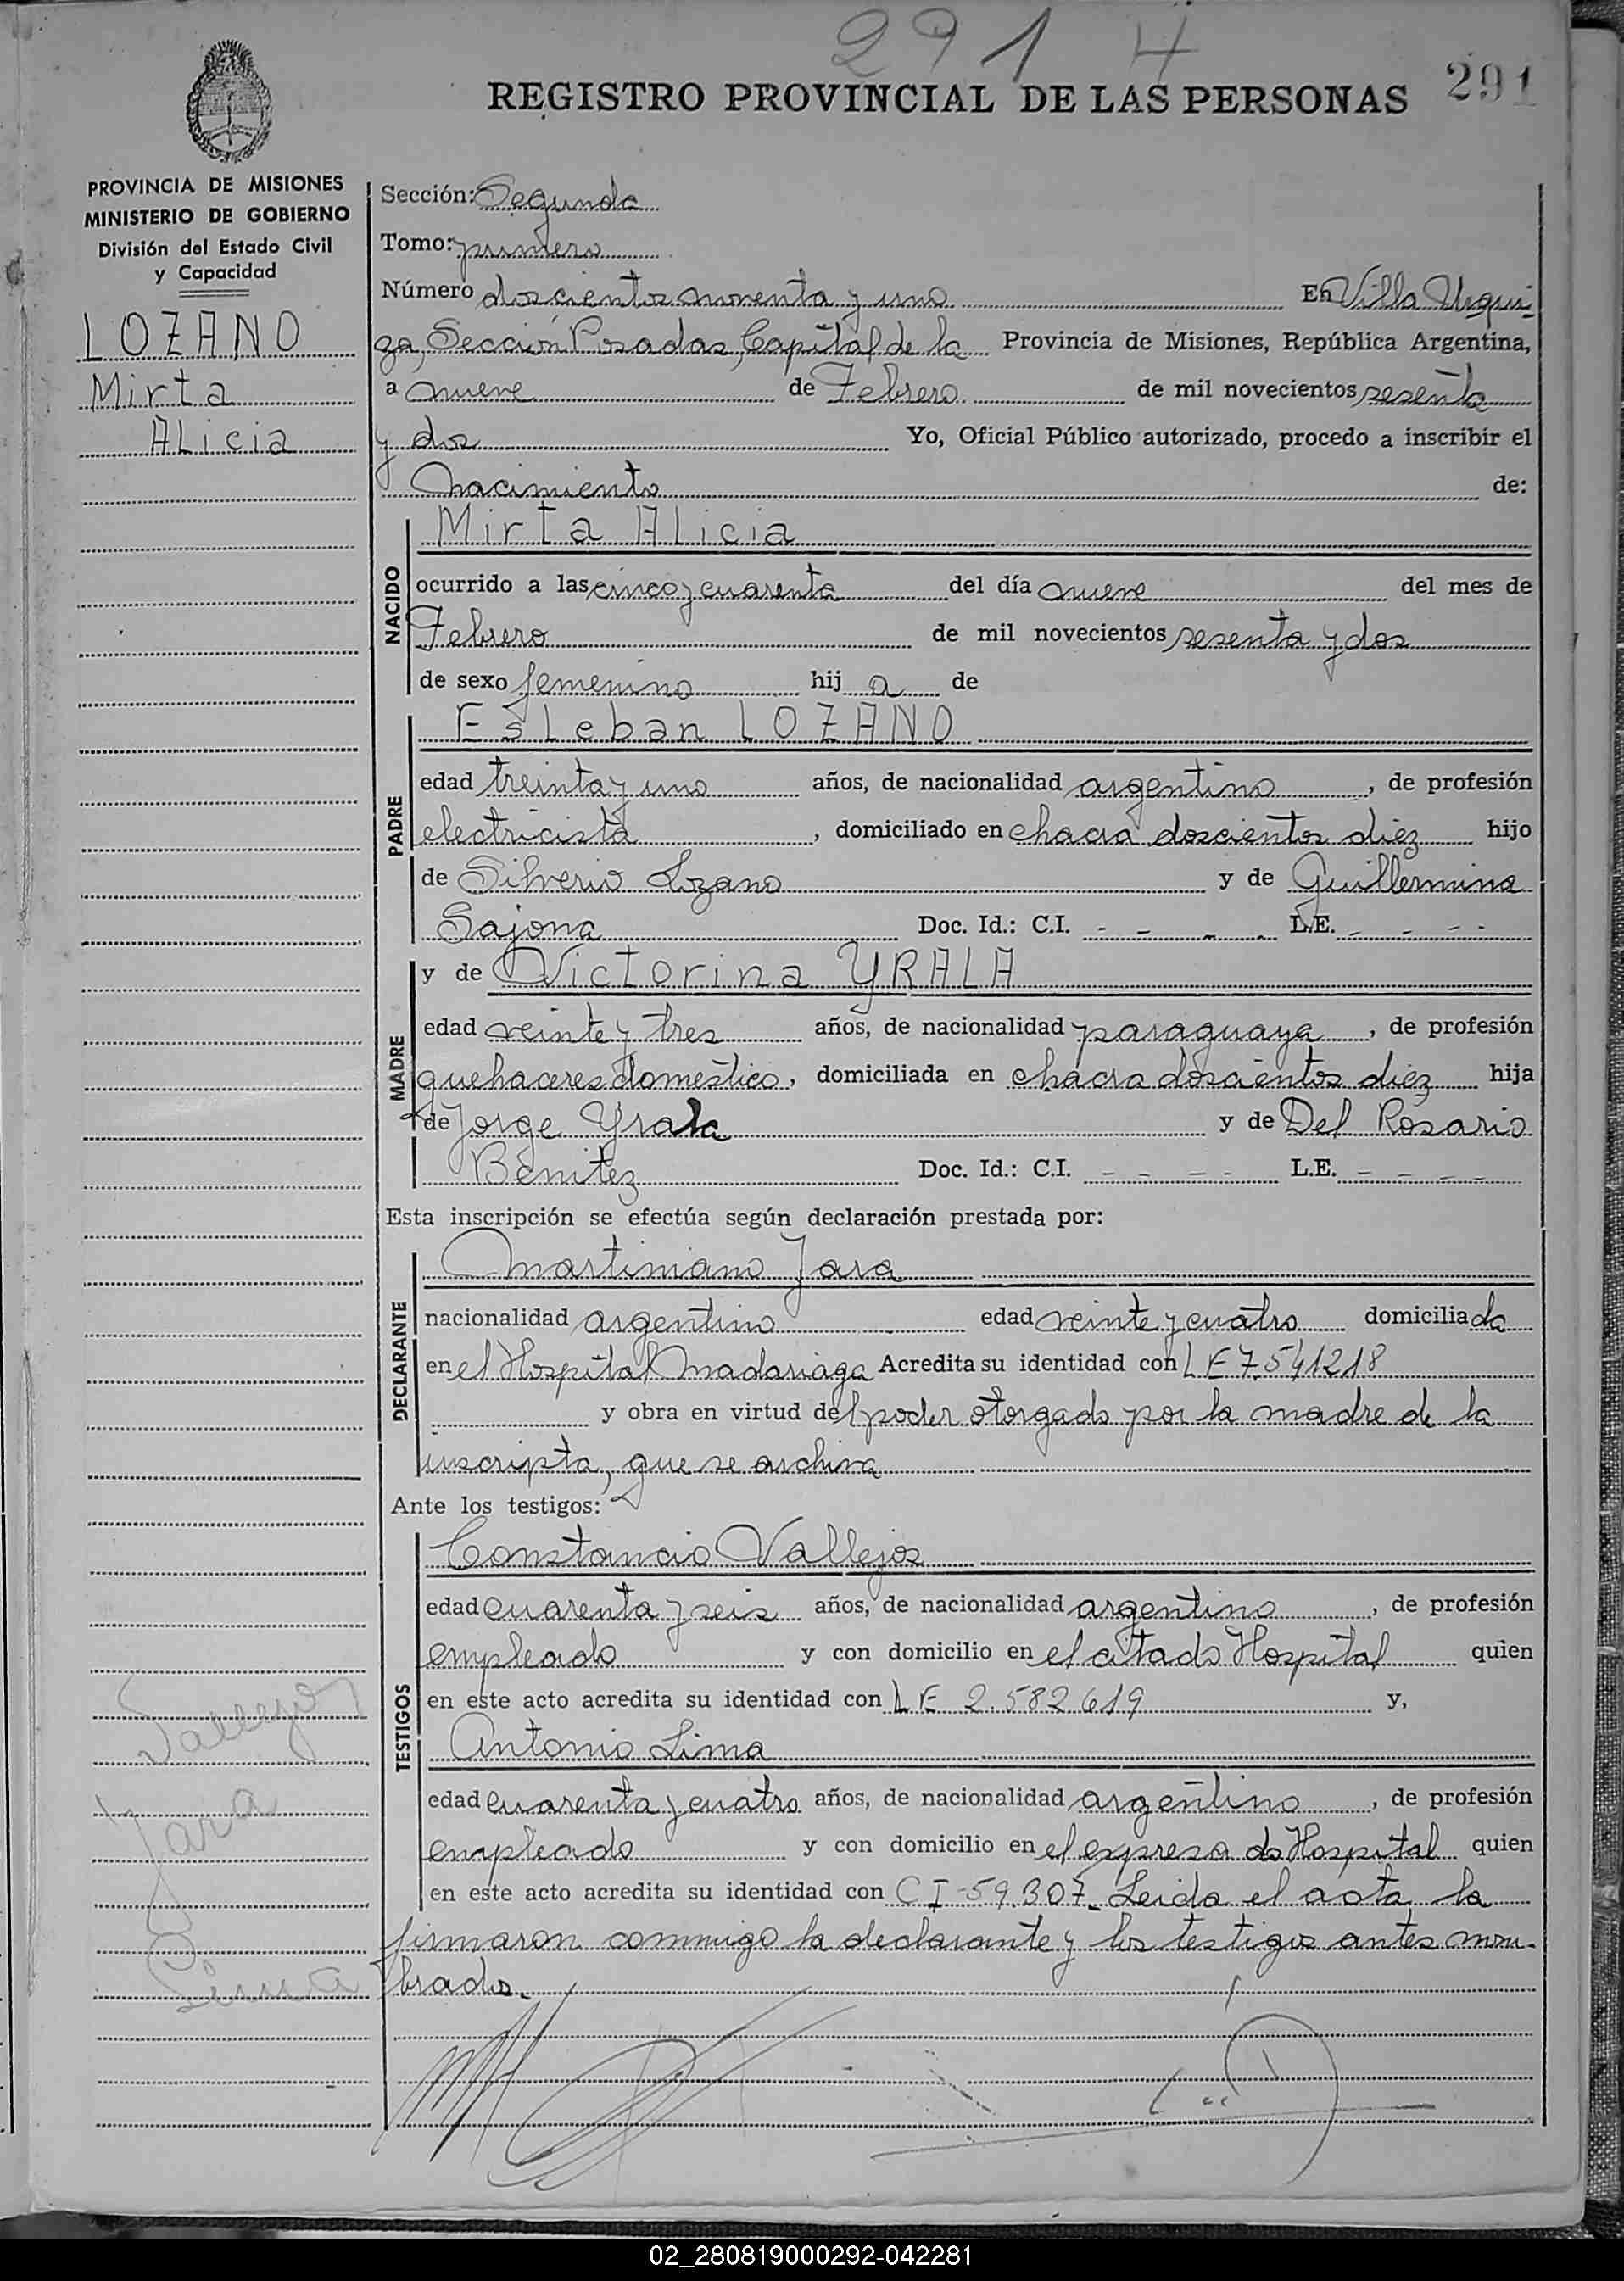 291 4
REGISTRO PROVINCIAL DE LAS PERSONAS 291
PROVINCIA DE MISIONES
MINISTERIO DE GOBIERNO
División del Estado Civil
y Capacidad
LOZANO
Mirta
ALicia
Sección: Segunda
Tomo: primero
Número doscientos noventa y uno En Villa Urqui
za, Sección Posadas, Capital de la Provincia de Misiones, República Argentina,
a nueve de Febrero de mil novecientos sesenta
y dos Yo, Oficial Público autorizado, procedo a inscribir el
nacimiento de:
NACIDO
Mirta ALicia
ocurrido a las cinco y cuarenta del día nueve del mes de
Febrero de mil novecientos sesenta y dos
de sexo femenino hij a de
PADRE
Esteban LOZANO
edad treinta y uno años, de nacionalidad argentino, de profesión
electricista, domiciliado en chacra doscientos diez hijo
de Silverio Lozano y de Guillermina
Sajona Doc. Id.: C.I. - - - - L.E. - - - -
MADRE
y de Victorina YRALA
edad veinte y tres años, de nacionalidad paraguaya, de profesión
quehaceres domestico, domiciliada en chacra doscientos diez hija
de Jorge Yrala y de Del Rosario
Benitez Doc. Id.: C.I. - - - - L.E. - - - -
Esta inscripción se efectúa según declaración prestada por:
DECLARANTE
Martiniano Jara
nacionalidad argentino edad veinte y cuatro domiciliada
en el Hospital Madariaga Acredita su identidad con L E 7.541218
y obra en virtud del poder otorgado por la madre de la
inscripta, que se archiva
Ante los testigos:
TESTIGOS
Constancio Vallejos
edad cuarenta y seis años, de nacionalidad argentino, de profesión
empleado y con domicilio en el citado Hospital quien
en este acto acredita su identidad con L E 2.582.619 y,
Antonio Lima
edad cuarenta y cuatro años, de nacionalidad argentino, de profesión
empleado y con domicilio en el expresado Hospital quien
en este acto acredita su identidad con C I 59.307_ Leida el acta, la
firmaron conmigo la declarante y los testigos antes nom-
brados._
Vallejos
Jara
Lima
02_280819000292-042281